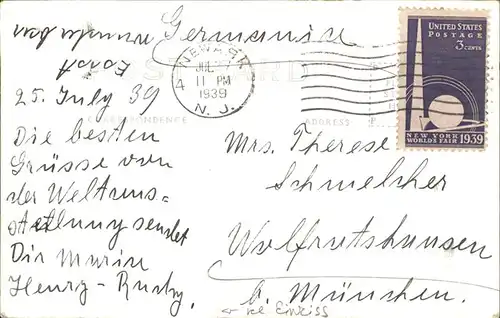 Germania
wunderbar
East
NEWARK
JUL
4 11 PM
1939
N. J.
UNITED STATES
POSTAGE
3 CENTS
NEW YORK 1939
WORLD'S FAIR
CORRESPONDENCE
ADDRESS
25. July 39
Die besten
Grüsse von
der Weltaus=
stellung sendet
Dir
Henry - Ruby.
Mrs. Therese
Schmelcher
Wolfratshausen
b. München.